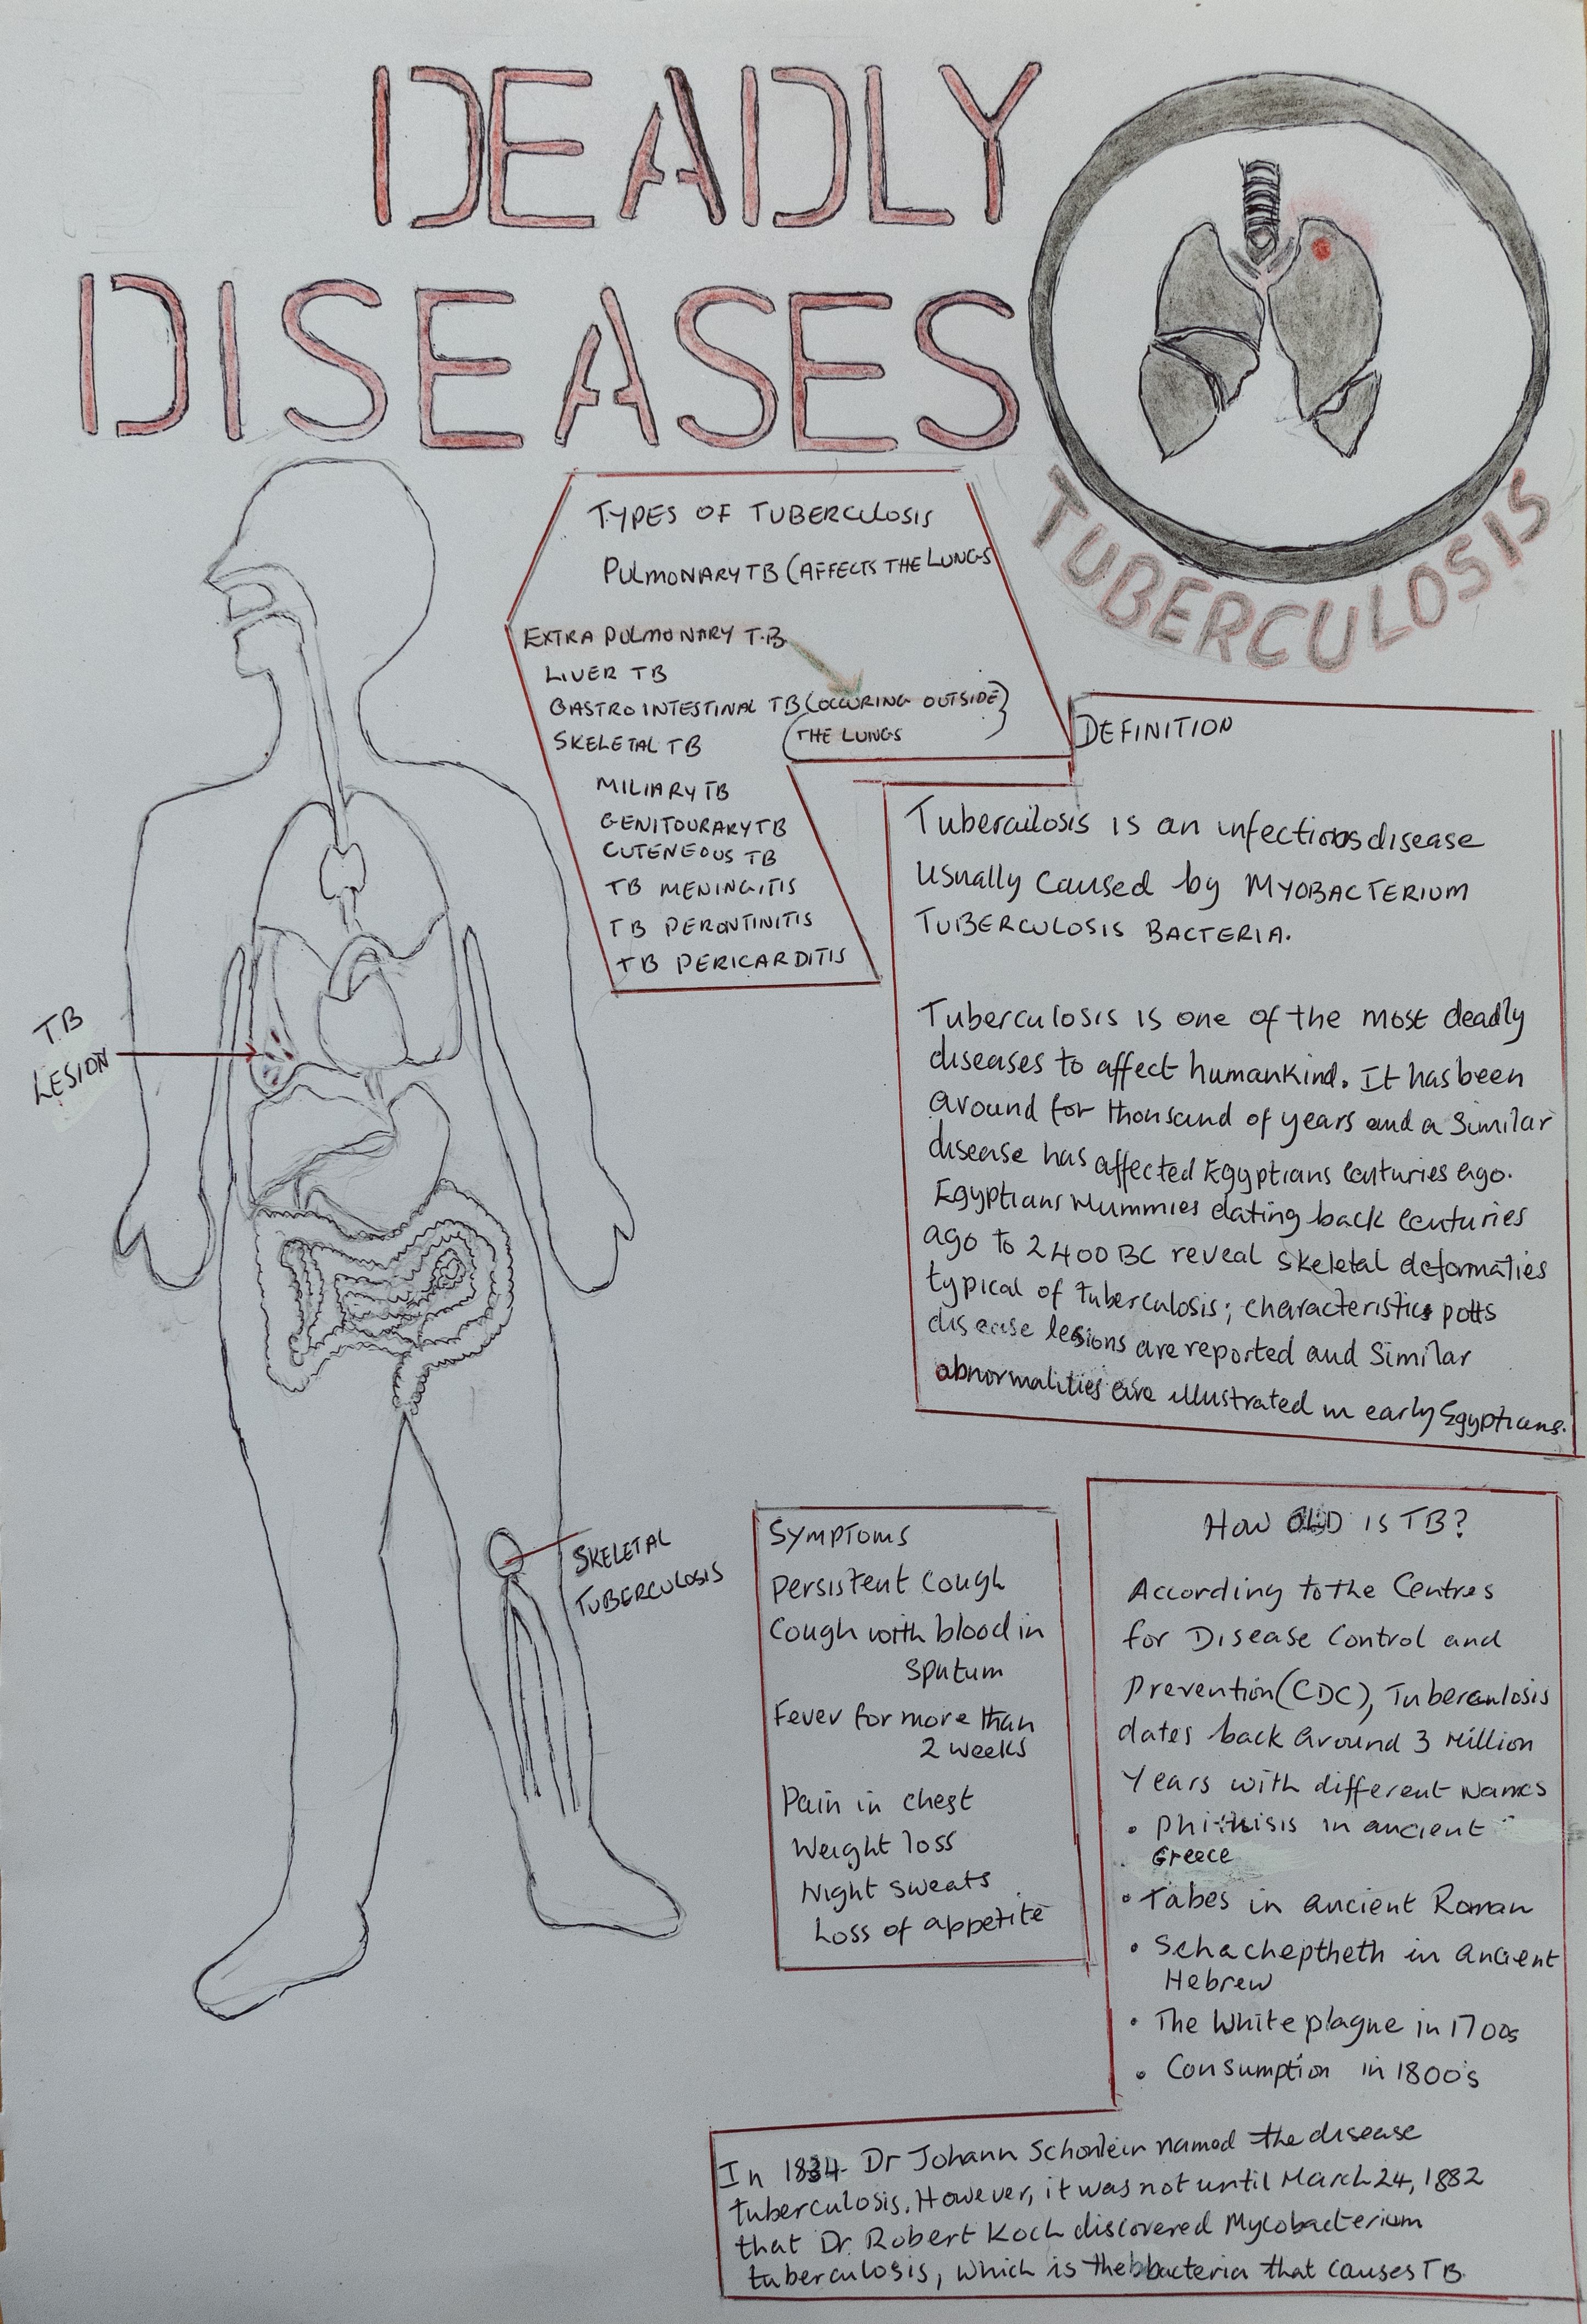 DEADLY
DISEASES
TUBERCULOSIS
TYPES OF TUBERCULOSIS
PULMONARY TB (AFFECTS THE LUNGS
EXTRA PULMONARY T.B
LIVER TB
GASTROINTESTINAL TB (OCCURING OUTSIDE)
(THE LUNGS
SKELETAL TB
MILIARY TB
GENITOURARY TB
CUTENEOUS TB
TB MENINGITIS
TB PERONTINITIS
TB PERICARDITIS
DEFINITION
Tubercilosis is an infectious disease
usually caused by MYOBACTERIUM
TUBERCULOSIS BACTERIA.
Tuberculosis is one of the most deadly
diseases to affect humankind. It has been
around for thousand of years and a similar
disease has affected Egyptians centuries ago.
Egyptians mummies dating back centuries
ago to 2400 BC reveal skeletal deformaties
typical of tuberculosis; characteristics potts
disease lesions are reported and similar
abnormalities are illustrated in early Egyptians.
T.B
LESION
SKELETAL
TUBERCULOSIS
SYMPTOMS
Persistent cough
Cough with blood in
sputum
Fever for more than
2 weeks
Pain in chest
Weight loss
Night sweats
Loss of appetite
HOW OLD IS TB?
According to the Centres
for Disease Control and
Prevention (CDC), Tuberculosis
dates back around 3 Million
Years with different Names
• Phithisis in ancient
Greece
• Tabes in ancient Roman
• Schacheptheth in ancient
Hebrew
• The White plague in 1700s
• Consumption in 1800's
In 1834 Dr Johann Schonlein named the disease
tuberculosis. However, it was not until March 24, 1882
that Dr. Robert Koch discovered Mycobacterium
tuberculosis, which is the bacteria that causes TB.